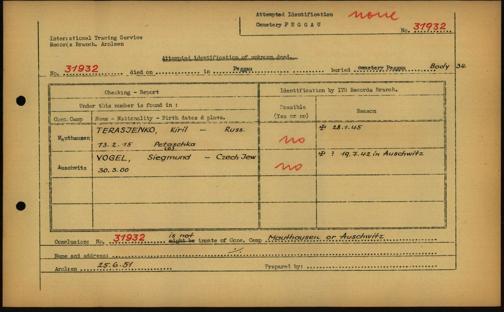 Attempted Identification none
Cemetery PEGGAU
No. 31932
International Tracing Service
Records Branch, Arolsen
Attempted identification of unknown dead.
No. 31932 died on in Peggau buried cemetery Peggau Body 34.
Checking - Report
Identification by ITS Records Branch.
Under this number is found in :
Possible
(Yes or no)
Reason
Conc.Camp Name - Nationality - Birth dates & place.
Mauthausen TERASJENKO, Kiril — Russ.
13.2.15 Petaschka
no
✠ 28.1.45
Auschwitz VOGEL, Siegmund — Czech Jew
30.3.00
no
✠ ? 19.7.42 in Auschwitz
is not
Conclusion: No. 31932 might be inmate of Conc. Camp Mauthausen or Auschwitz
Name and address:
Arolsen 25.6.51 Prepared by: